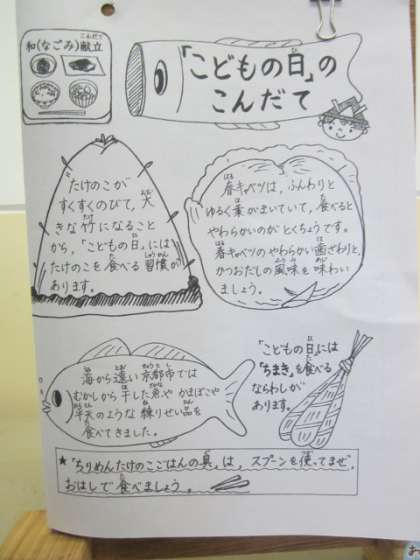 和(なごみ)献立
「こどもの日」の
こんだて
たけのこが
すくすくのびて、大
きな竹になること
から、「こどもの日」には
たけのこを食べる習慣が
あります。
春キャベツは、ふんわりと
ゆるく葉がまいていて、食べると
やわらかいのがとくちょうです。
春キャベツのやわらかい歯ざわりと、
かつおだしの風味を味わい
ましょう。
海から遠い京都市では
むかしから干した魚やかまぼこや
半天のような練りせい品を
食べてきました。
「こどもの日」には
「ちまき」を食べる
ならわしが
あります。
★「ちりめんたけのこごはんの具」は、スプーンを使ってまぜ、
おはしで食べましょう。